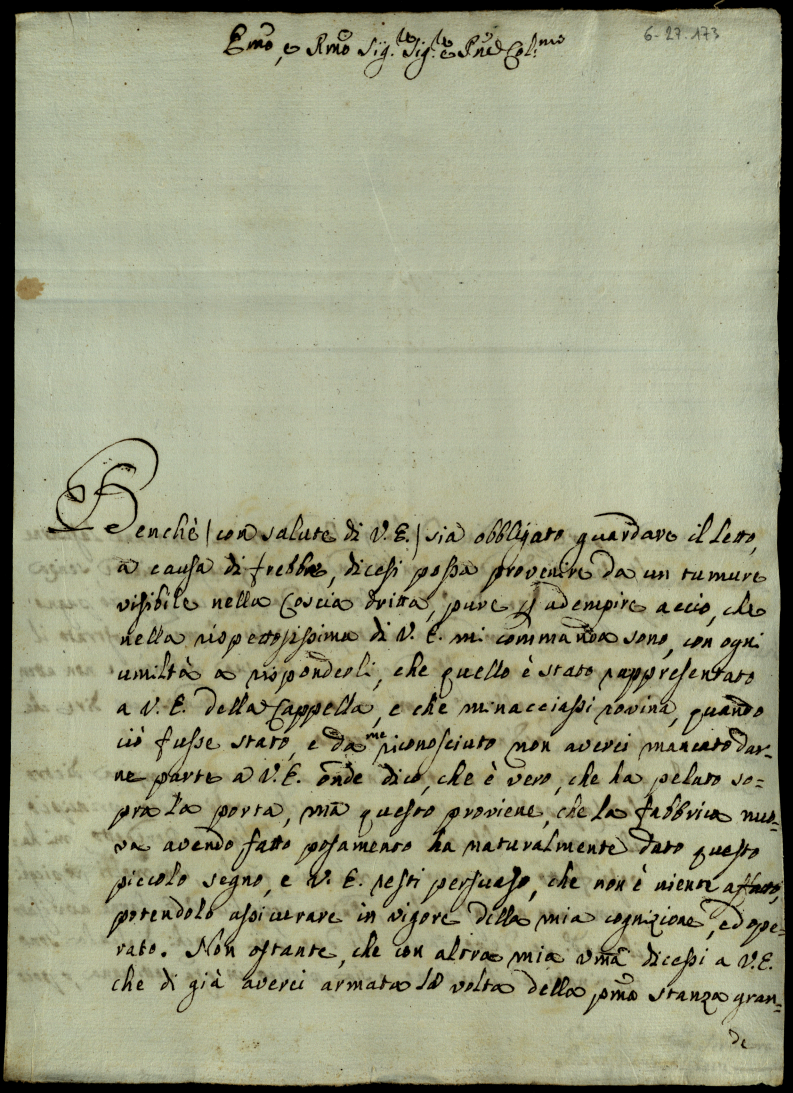 Emo, e Rmo Sig.re Sig.re e Pne Col.mo
6-27.173
Benchè (con salute di V.E.) sia obbligato guardare il letto,
a causa di frebbe, dicesi possa provenire da un tumure
visibile nella Coscia dritta, pure p adempire a ciò, che
nella rispettosissima di V. E. mi commanda sono, con ogni
umiltà a rispondeoli, che quello è stato rappresentato
a V. E. della Cappella, e che minacciassi rovina, quando
ciò fusse stato, e da me riconosciuto non averei mancato dar-
ne parte a V.E. onde dico, che è vero, che ha pelato so=
pra la porta, mà questo proviene, che la fabbrica nuo=
va avendo fatto posamento ha naturalmente dato questo
piccolo segno, e V. E. resti persuaso, che non è niente affatto,
potendolo assicurare in vigore della mia cognizione, ed ope=
rato. Non ostante, che con altra mia umã dicessi a V.E.
che di già averci armata la volta della pma stanza gran=
de